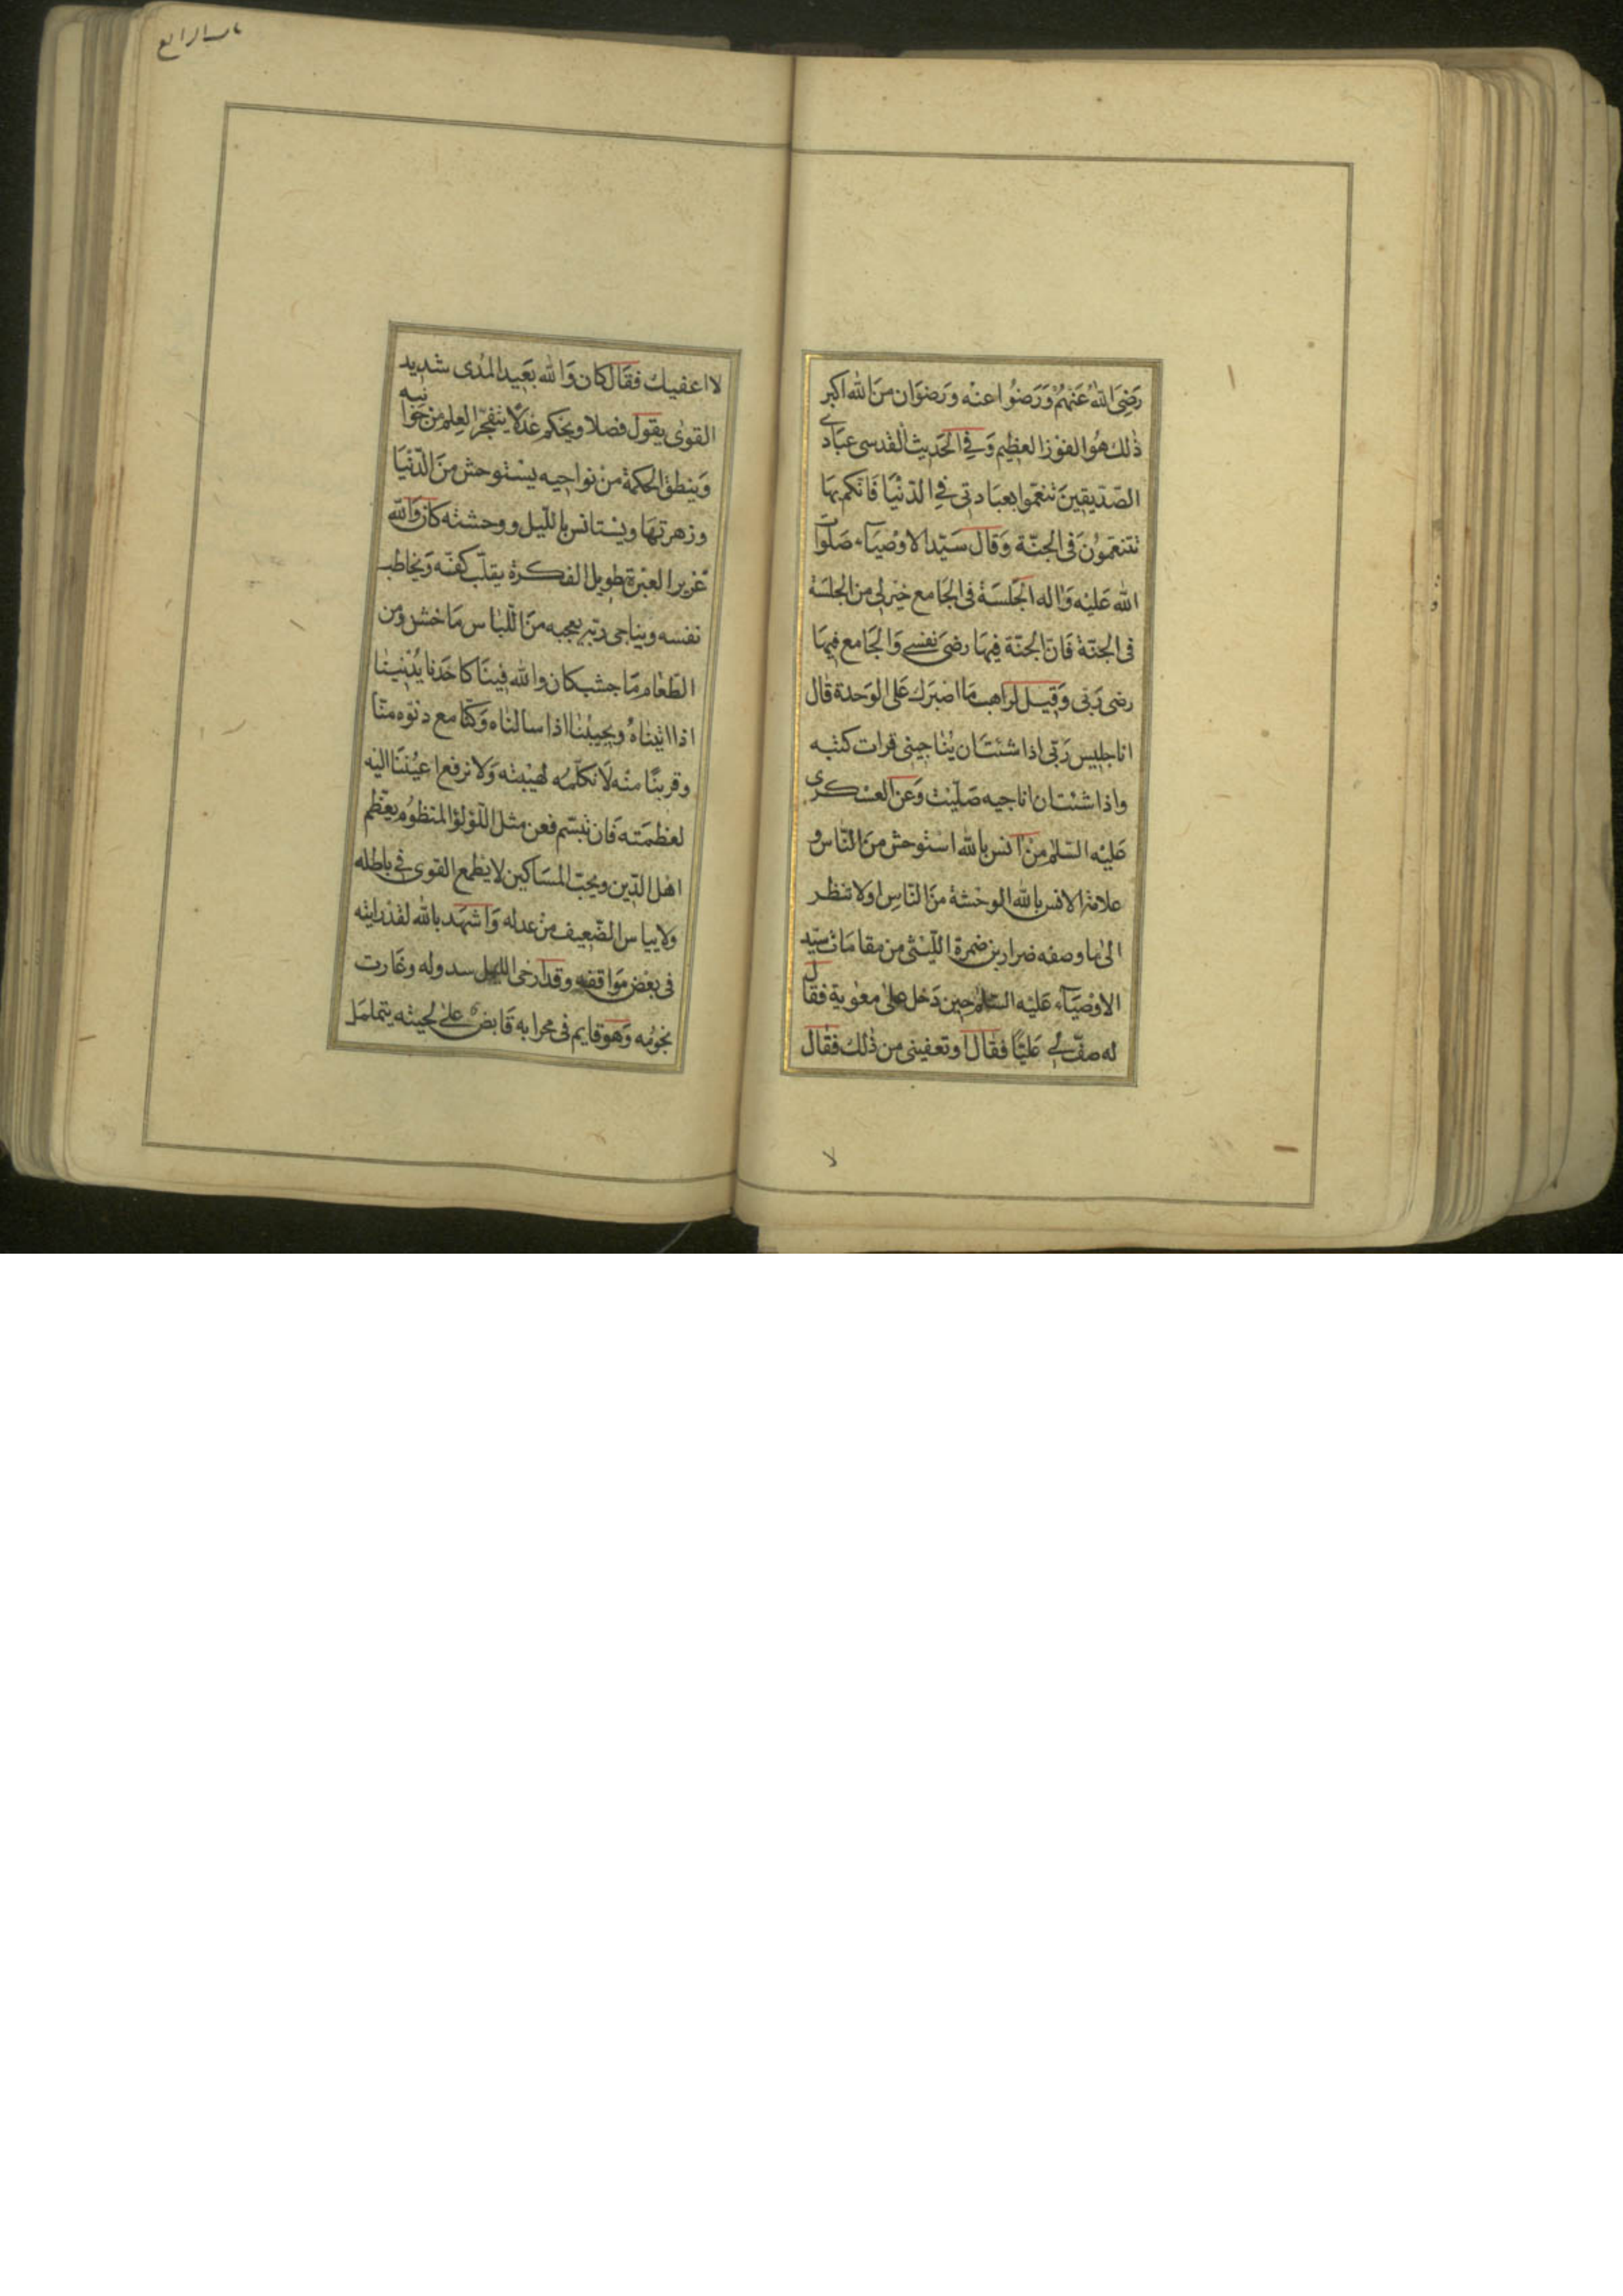 رَضِيَ اللهُ عَنْهُمْ وَرَضُوا عنْه وَرَضوَان منَ الله اكبر
ذٰلك هُوَ الفوْز العظيم وَفي الحَديث القدسى عبَادى
الصّدّيقينَ تنعّموا بعبَادتى في الدّنْيَا فَانّكم بهَا
تتنعّموُنَ فى الجنّة وَقال سَيّد الاوْصيَآء صَلوَات
الله عَليْه وَاله الجَلسَة فى الجَامع خيْر لى من الجلسَة
فى الجنّة فَانّ الجنّة فيهَا رضىَ نفسى وَالجَامع فيهَا
رضى رَبّى وَقيل لراهب مَا اصْبَرك عَلى الوَحدة قال
انا جليس رَبّى اذا شئتَ ان يُناجينى قرات كتبه
واذا شئت ان اناجيه صَلّيْت وَعن العسْكرى
عَليْه السّلم منْ انس بالله اسْتوحش منَ النّاس و
علامة الانس بالله الوحْشة منَ النّاس اولا تنظر
الى ما وصفه ضرار بن ضمرة اللّيْثى من مقامَات سيّد
الاوْصيَآء عَليْه السّلم حين دَخل على معٰوية فقال
له صفْ لى عَليّا فقال اوتعفينى من ذلك فقال
لا
لا اعفيك فقَال كان وَالله بعَيد المُدى شديد
القوٰى يقول فصلا ويحْكم عَدْلا يتفجّر العِلم من جَوانبه
وَينطق الحكمة من نواحيه يسْتوحش منَ الدّنيَا
وزهرتهَا ويسْتانس باللّيل ووحشته كان وَالله
غزير العبْرة طويل الفكرة يقلّب كفّه وَيخاطب
نفسه ويناجى ربّه يعجبه منَ اللّباس مَا خشن ومن
الطّعَام مَا جشب كان والله فينَا كاحَدنا يُدْنينا
اذا اتيناهُ ويجيبُنا اذا سالناه وَكنّا مع دنوّه منّا
وقربنَا منْه لَا نكلّمُه لهيْبته وَلا نرفع اعيُننَا اليْه
لعظمَته فَان تبسّم فعن مثل اللّؤلؤ المنظوُم يعَظّم
اهْل الدّين ويحبّ المسَاكين لا يطمع القوى في باطله
ولا ييأس الضّعيف منْ عدله وَاشهَد بالله لقدْ رايته
فى بعْض مَواقفه وقد ارخى الليل سدوله وغَارت
نجومُه وَهو قايم فى محرابه قَابض علىٰ لحيته يتململ